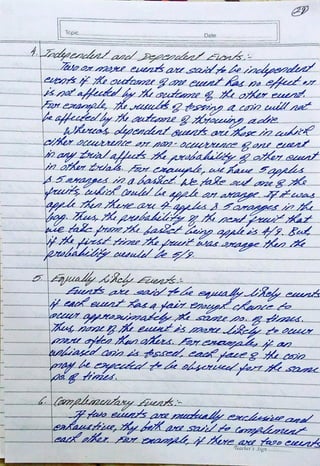 Topic
Date
4. Independent and Dependent Events:-
Two or more events are said to be independent
events if the outcome of one event has no effect or
is not affected by the outcome of the other event.
For example, the results of tossing a coin will not
be affected by the outcome of throwing a die.
Whereas, dependent events are those in which
either occurrence or non-occurrence of one event
in any trial affects the probability of other event
in other trials. For example, we have 5 apples
& 5 oranges in a basket. We take out one of the
fruits, which could be apple or orange. If it was
apple then there are 4 apples & 5 oranges in the
bag. Thus, the probability of the next fruit that
we take from the basket being apple is 4/9. But
if the first time the fruit was orange then the
probability would be 5/9.
5. Equally Likely Events:-
Events are said to be equally likely events
if each event has a fair enough chance to
occur approximately the same no. of times.
Thus none of the event is more likely to occur
more often than others. For example, if an
unbiased coin is tossed, each face of the coin
may be expected to be observed for the same
no. of times.
6. Complementary Events:-
If two events are mutually exclusive and
exhaustive, they both are said to compliment
each other. For example, if there are two events
Teacher's Sign